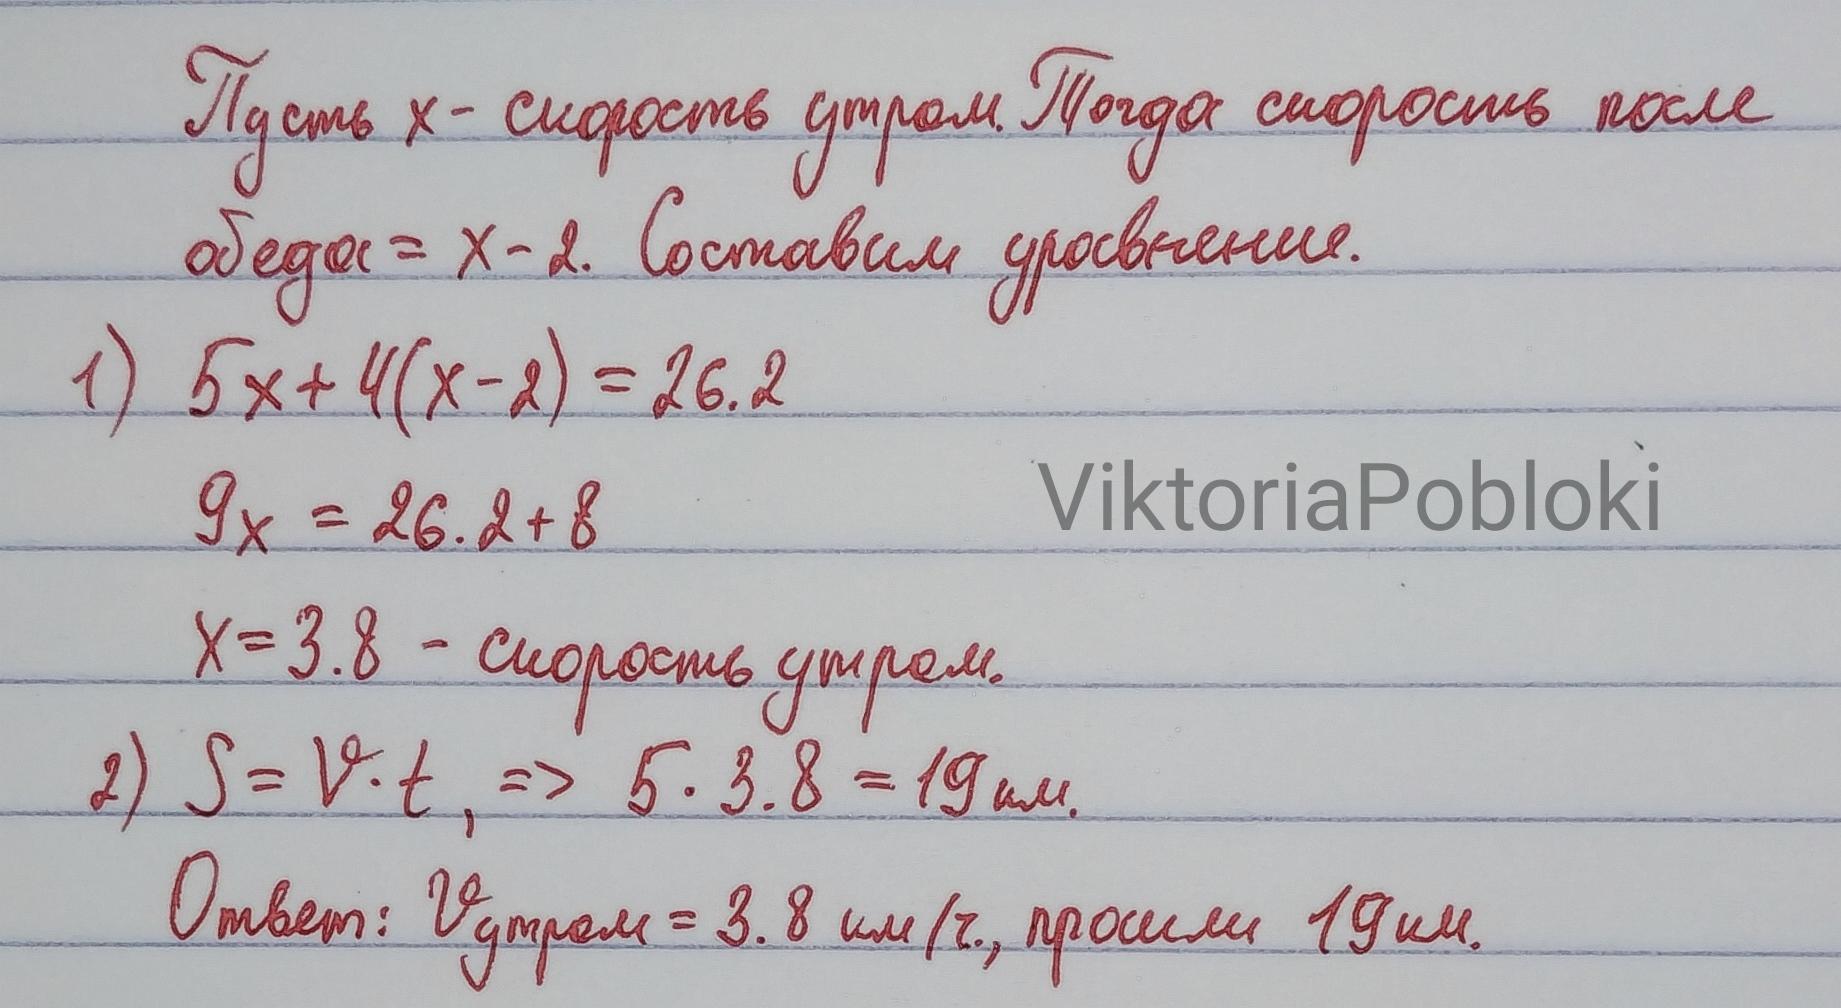 Пусть x - скорость утром. Тогда скорость после
обеда = x - 2. Составим уравнение.
1) 5x + 4(x - 2) = 26.2
9x = 26.2 + 8
ViktoriaPobloki
x = 3.8 - скорость утром.
2) S = V · t, => 5 · 3.8 = 19 км.
Ответ: Vутром = 3.8 км/ч., прошли 19 км.